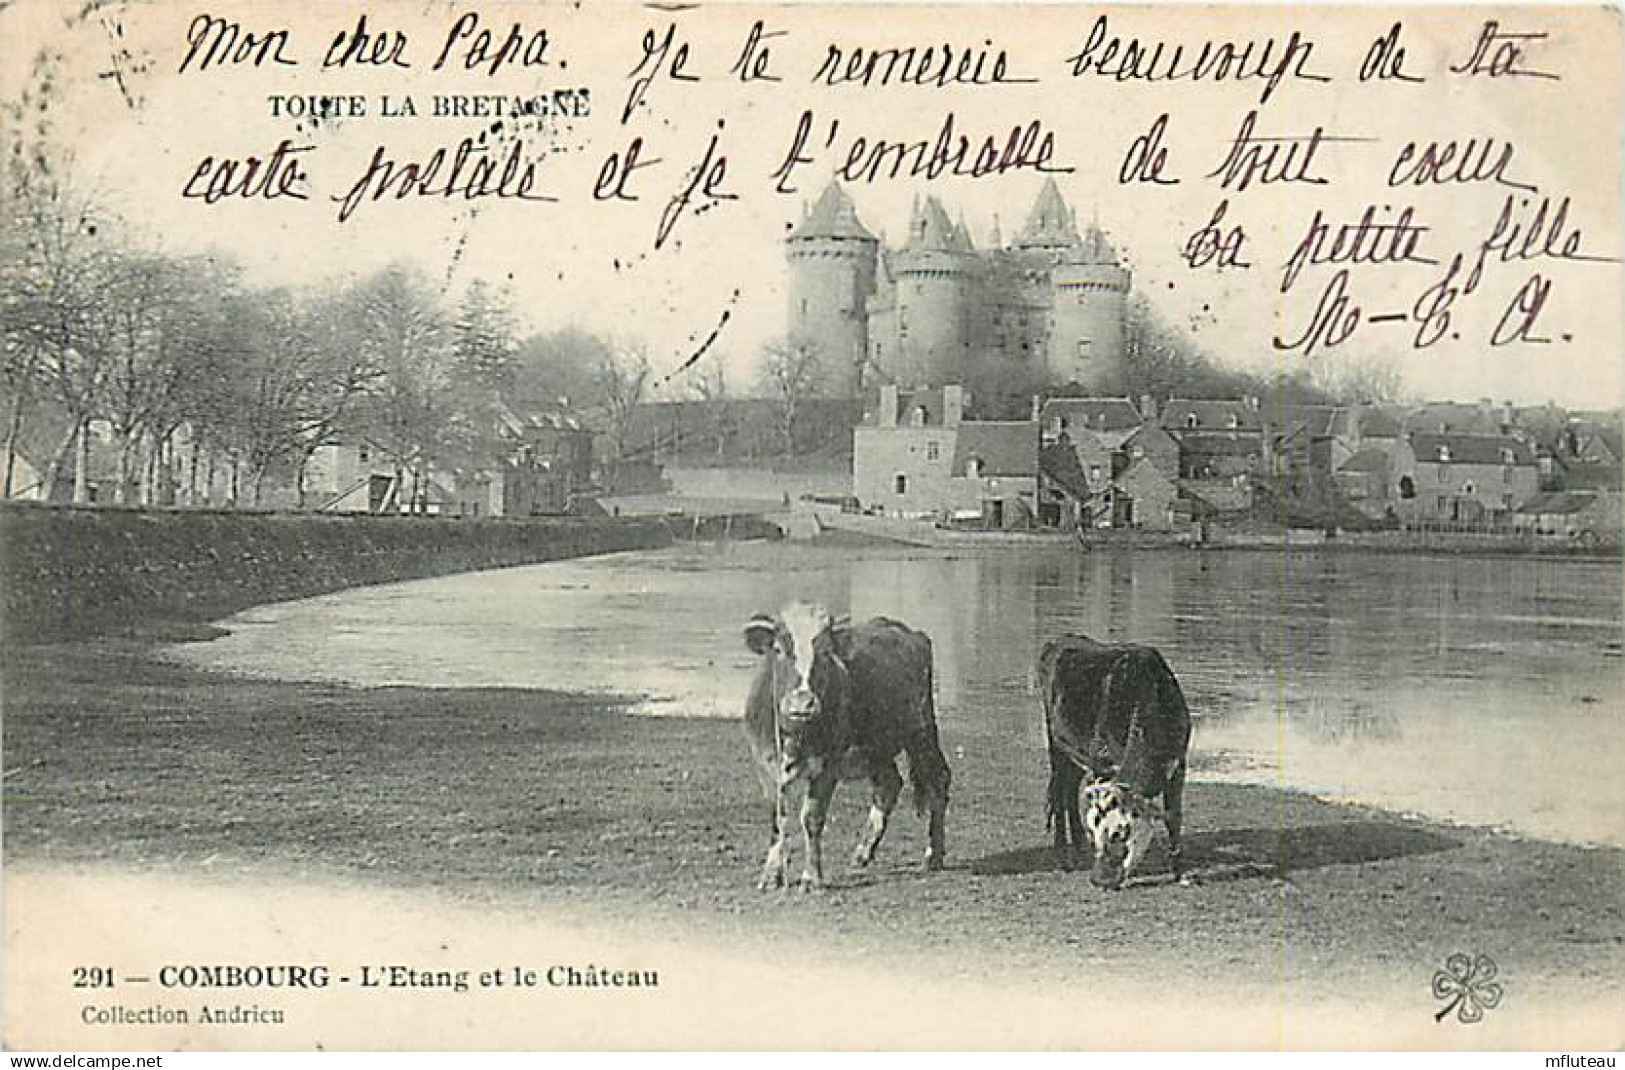 Mon cher Papa. Je te remercie beaucoup de ta
TOUTE LA BRETAGNE
carte postale et je t'embrasse de tout cœur
Ta petite fille
M-C. A.
291 — COMBOURG - L'Etang et le Château
Collection Andrieu
www.delcampe.net
mfluteau